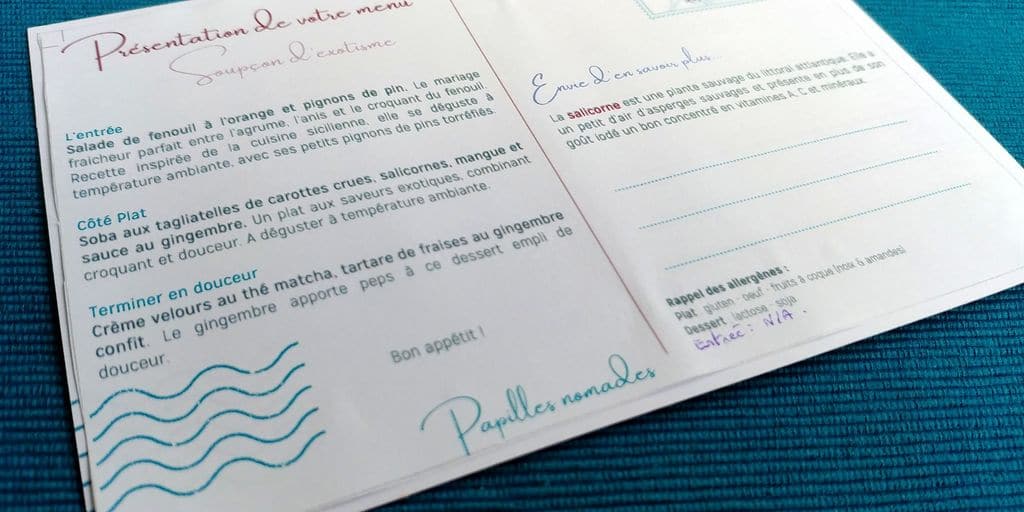 Présentation de votre menu
Soupçon d'exotisme
L'entrée
Salade de fenouil à l'orange et pignons de pin. Le mariage
fraicheur parfait entre l'agrume, l'anis et le croquant du fenouil.
Recette inspirée de la cuisine sicilienne, elle se déguste à
température ambiante, avec ses petits pignons de pins torréfiés.
Côté Plat
Soba aux tagliatelles de carottes crues, salicornes, mangue et
sauce au gingembre. Un plat aux saveurs exotiques, combinant
croquant et douceur. A déguster à température ambiante.
Terminer en douceur
Crème velours au thé matcha, tartare de fraises au gingembre
confit. Le gingembre apporte peps à ce dessert empli de
douceur.
Bon appétit !
Papilles nomades
Envie d'en savoir plus...
La salicorne est une plante sauvage du littoral atlantique. Elle a
un petit d'air d'asperges sauvages et présente en plus de son
goût iodé un bon concentré en vitamines A, C et minéraux.
Rappel des allergènes :
Plat : gluten - oeuf - fruits à coque (noix & amandes)
Dessert : lactose - soja
Entrée : N/A.